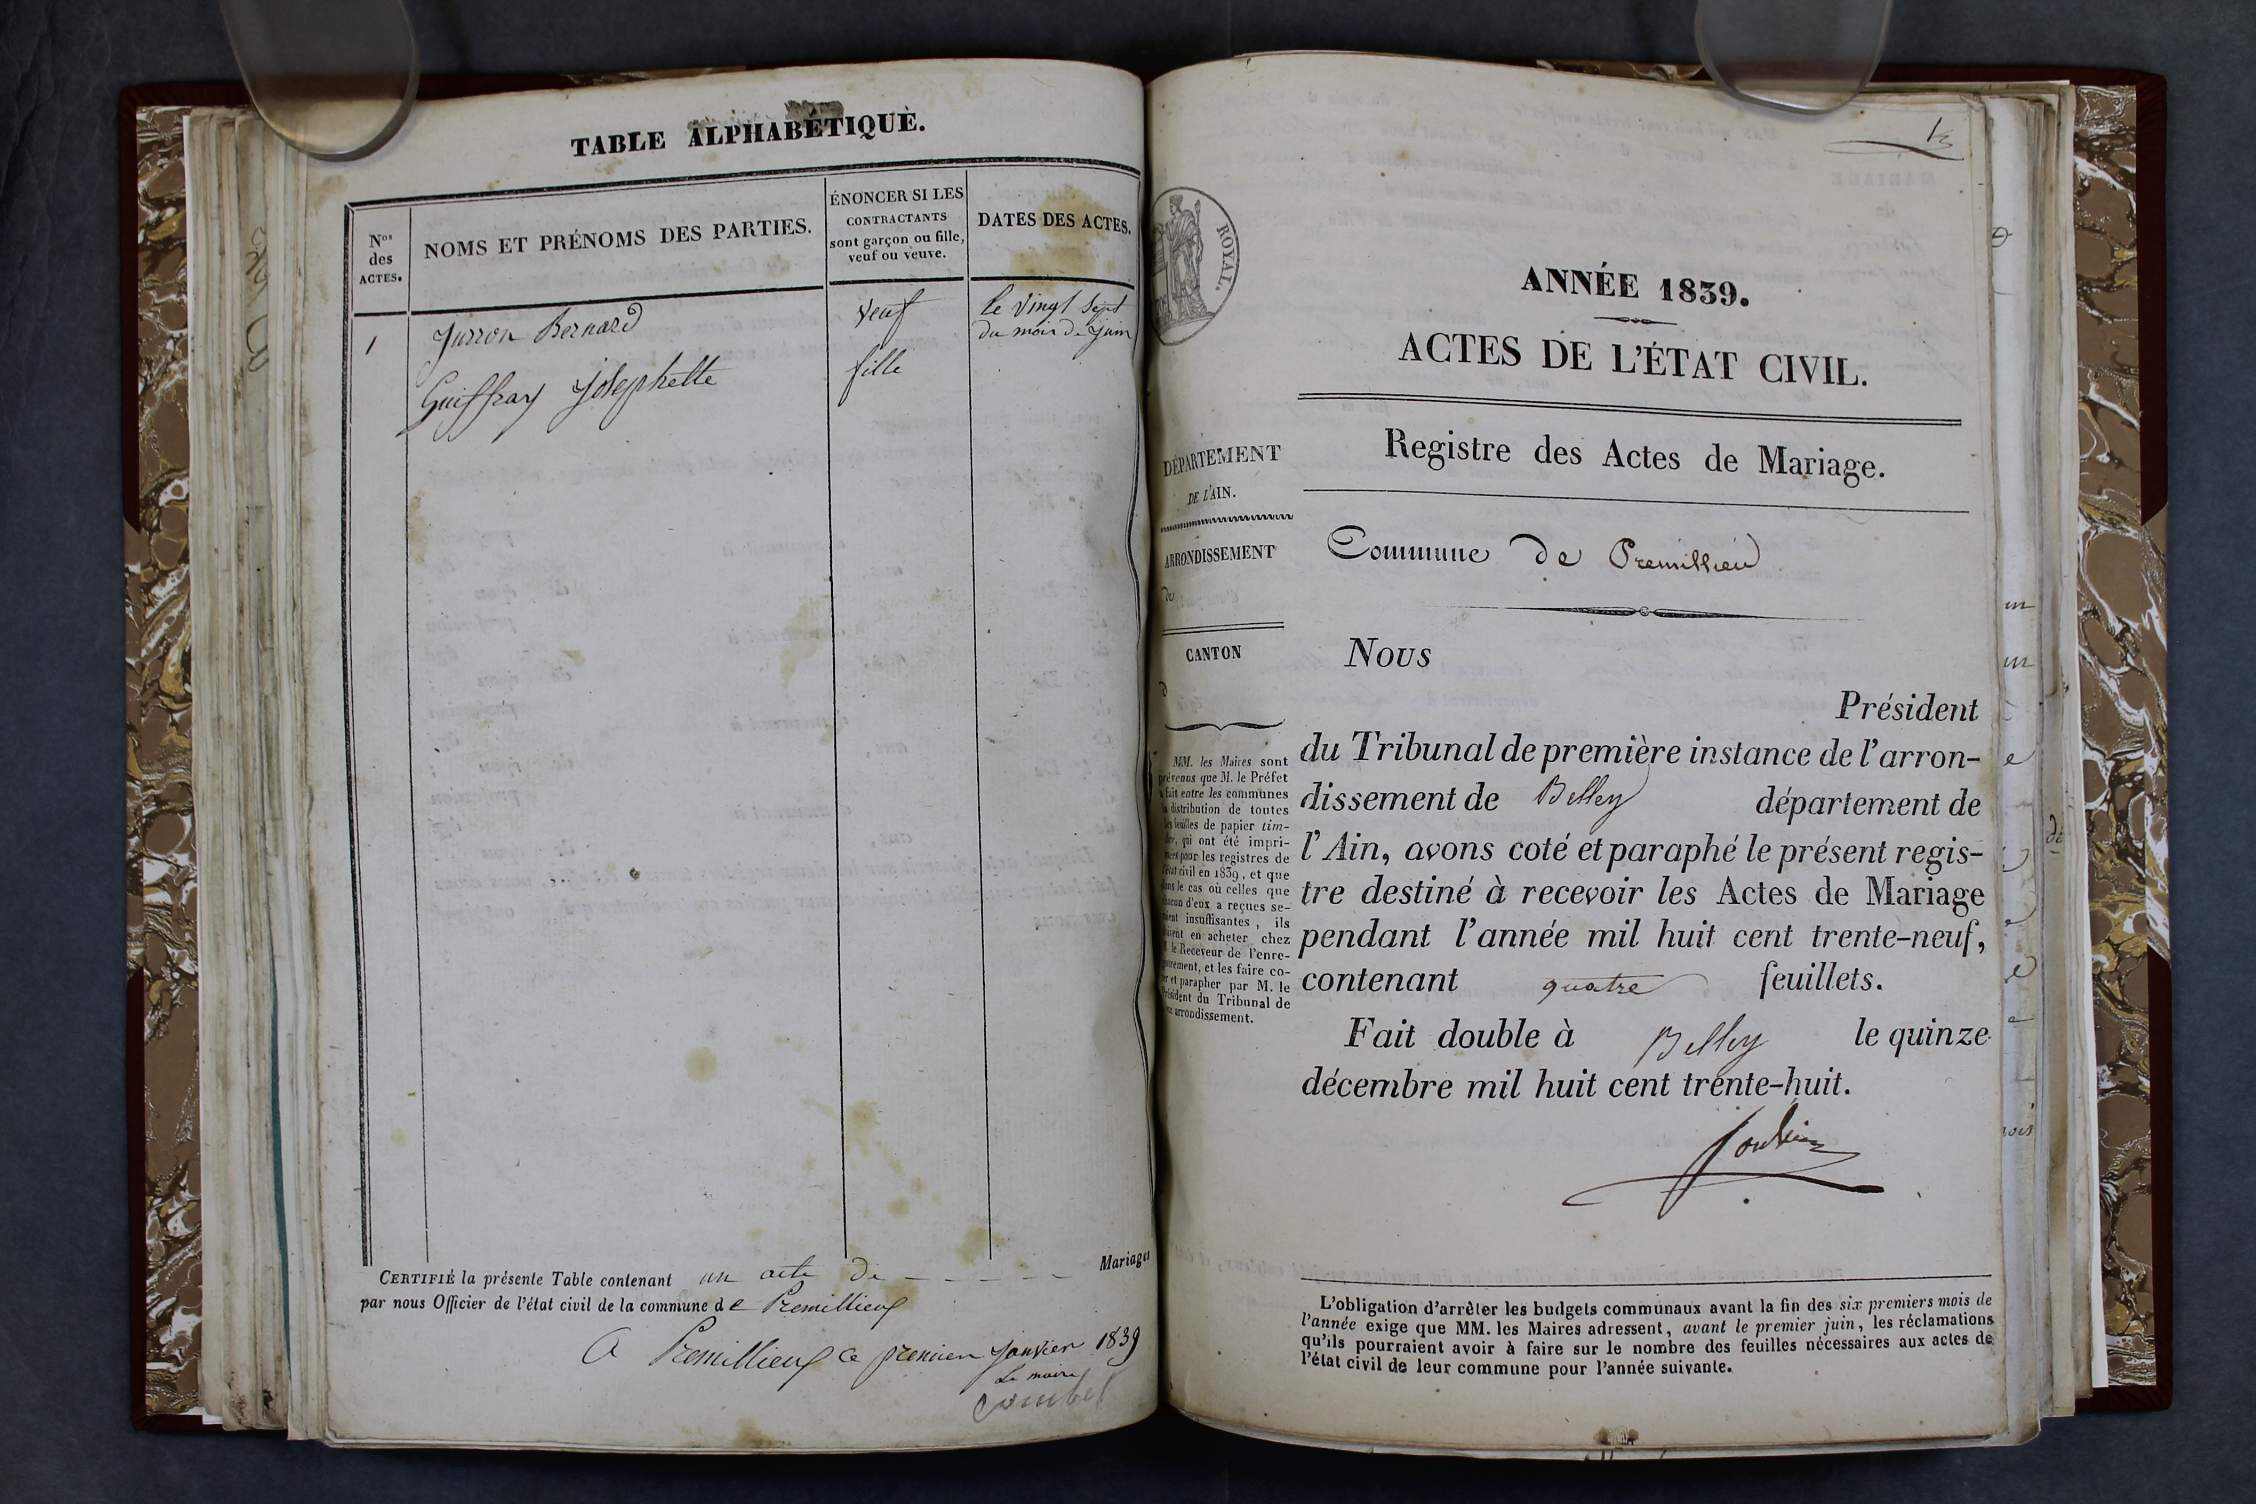 TABLE ALPHABÉTIQUE.
Nos des ACTES.
NOMS ET PRÉNOMS DES PARTIES.
ÉNONCER SI LES
CONTRACTANTS
sont garçon ou fille,
veuf ou veuve.
DATES DES ACTES.
1
Jurron Bernard
veuf
le vingt Sept
du mois de juin
Guiffray Josephette
fille
CERTIFIÉ la présente Table contenant un acte de - - - - - Mariages
par nous Officier de l'état civil de la commune de Premillieux
A Premillieux ce premier janvier 1839
Le maire
ROYAL.
ANNÉE 1839.
ACTES DE L'ÉTAT CIVIL.
DÉPARTEMENT
DE L'AIN.
ARRONDISSEMENT
de
CANTON
d
MM. les Maires sont
prévenus que M. le Préfet
a fait entre les communes
la distribution de toutes
les feuilles de papier tim-
bré, qui ont été impri-
mées pour les registres de
l'état civil en 1839, et que
dans le cas où celles que
chacun d'eux a reçues se-
raient insuffisantes, ils
en acheter chez
M. le Receveur de l'enre-
gistrement, et les faire co-
ter et parapher par M. le
Président du Tribunal de
arrondissement.
Registre des Actes de Mariage.
Commune de Premillieu
Nous
Président
du Tribunal de première instance de l'arron-
dissement de Belley département de
l'Ain, avons coté et paraphé le présent regis-
tre destiné à recevoir les Actes de Mariage
pendant l'année mil huit cent trente-neuf,
contenant quatre feuillets.
Fait double à Belley le quinze
décembre mil huit cent trente-huit.
L'obligation d'arrêter les budgets communaux avant la fin des six premiers mois de
l'année exige que MM. les Maires adressent, avant le premier juin, les réclamations
qu'ils pourraient avoir à faire sur le nombre des feuilles nécessaires aux actes de
l'état civil de leur commune pour l'année suivante.